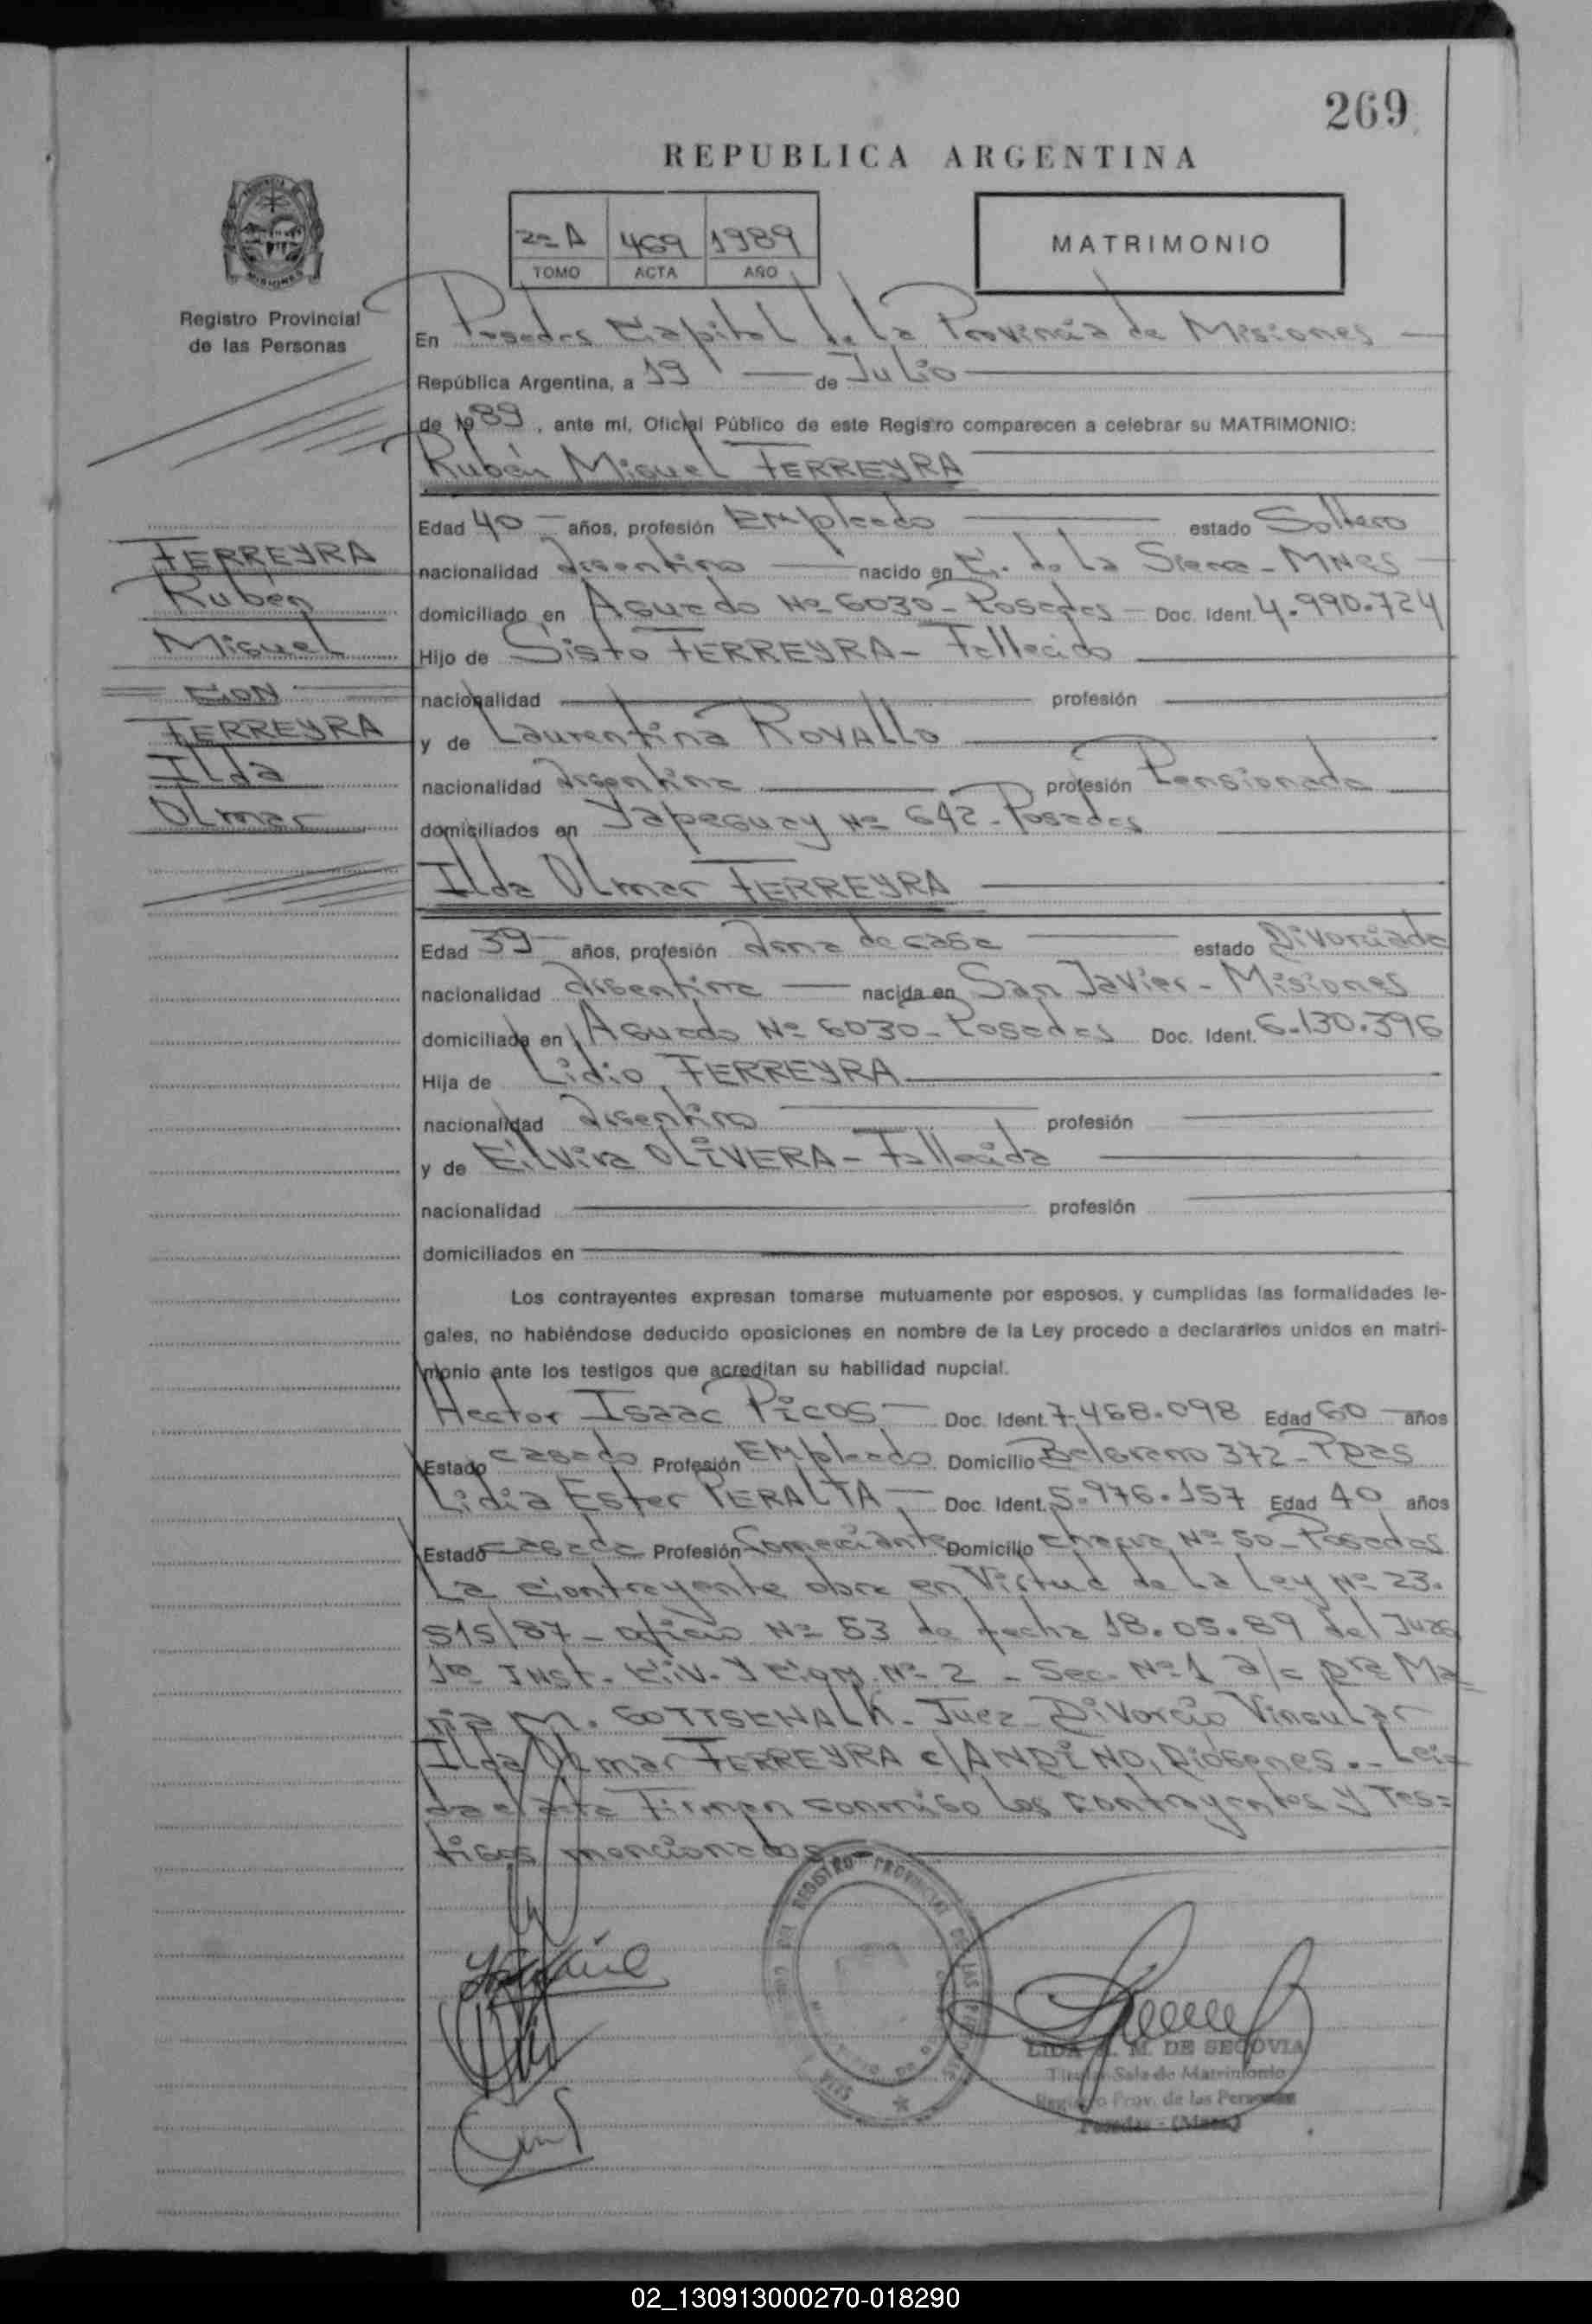 269
REPUBLICA ARGENTINA
2º A 469 1989
TOMO ACTA AÑO
MATRIMONIO
Registro Provincial
de las Personas
En Posadas Capital de la Provincia de Misiones
República Argentina, a 19 de Julio
de 1989, ante mí, Oficial Público de este Registro comparecen a celebrar su MATRIMONIO:
Rubén Miguel FERREYRA
Edad 40 años, profesión Empleado estado Soltero
nacionalidad argentino nacido en C. de la Sierra - MNES
domiciliado en Aguado Nº 6030 - Posadas Doc. Ident. 4.990.724
Hijo de Sisto FERREYRA - Fallecido
nacionalidad profesión
y de Laurentina ROVALLO
nacionalidad argentina profesión Pensionada
domiciliados en Yapeguay Nº 642 - Posadas
FERREYRA
Rubén
Miguel
CON
FERREYRA
Ilda
Olmar
Ilda Olmar FERREYRA
Edad 39 años, profesión ama de casa estado Divorciada
nacionalidad argentina nacida en San Javier - Misiones
domiciliada en Aguado Nº 6030 - Posadas Doc. Ident. 6.130.396
Hija de Lidio FERREYRA
nacionalidad argentino profesión
y de Elvira OLIVERA - Fallecida
nacionalidad profesión
domiciliados en
Los contrayentes expresan tomarse mutuamente por esposos, y cumplidas las formalidades le-
gales, no habiéndose deducido oposiciones en nombre de la Ley procedo a declararlos unidos en matri-
monio ante los testigos que acreditan su habilidad nupcial.
Hector Isaac Picos Doc. Ident. 7.468.098 Edad 60 años
Estado casado Profesión Empleado Domicilio Belgrano 372 - Pdas
Lidia Ester PERALTA Doc. Ident. 5.976.157 Edad 40 años
Estado casada Profesión Comerciante Domicilio Chacra Nº 50 - Posadas
La contrayente obra en Virtud de la Ley Nº 23.
515/87 - oficio Nº 53 de fecha 18.05.89 del Juzg
1ra INST. CIV. Y COM. Nº 2 - Sec. Nº 1 a/c Dra Ma
ria M. GOTTSCHALK - Juez - Divorcio Vinsular
Ilda Olmar FERREYRA c/ANDINO, Diógenes.- Leí
da el acta Firman conmigo los contrayentes y Tes=
tigos mencionados
REGISTRO PROVINCIAL DE LAS PERSONAS
LIDA M. DE SEGOVIA
Titular Sala de Matrimonio
Registro Prov. de las Personas
Posadas - (Mnes)
02_130913000270-018290